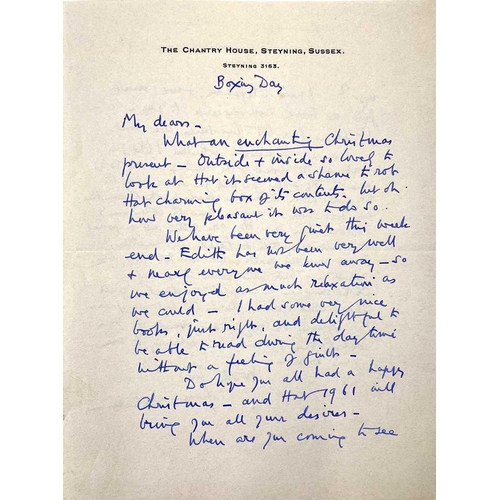 THE CHANTRY HOUSE, STEYNING, SUSSEX.
STEYNING 3163.
Boxing Day
My dears -
What an enchanting Christmas
present - Outside + inside so lovely to
look at that it seemed a shame to rob
that charming box of its contents. but oh.
how very pleasant it was to do so.
We have been very quiet this week
end - Edith has not been very well
+ nearly everyone we know away - so
we enjoyed as much relaxation as
we could - I had some very nice
books, just right, and delightful to
be able to read during the day time
without a feeling of guilt -
Do hope you all had a happy
Christmas - and that 1961 will
bring you all your desires -
When are you coming to see